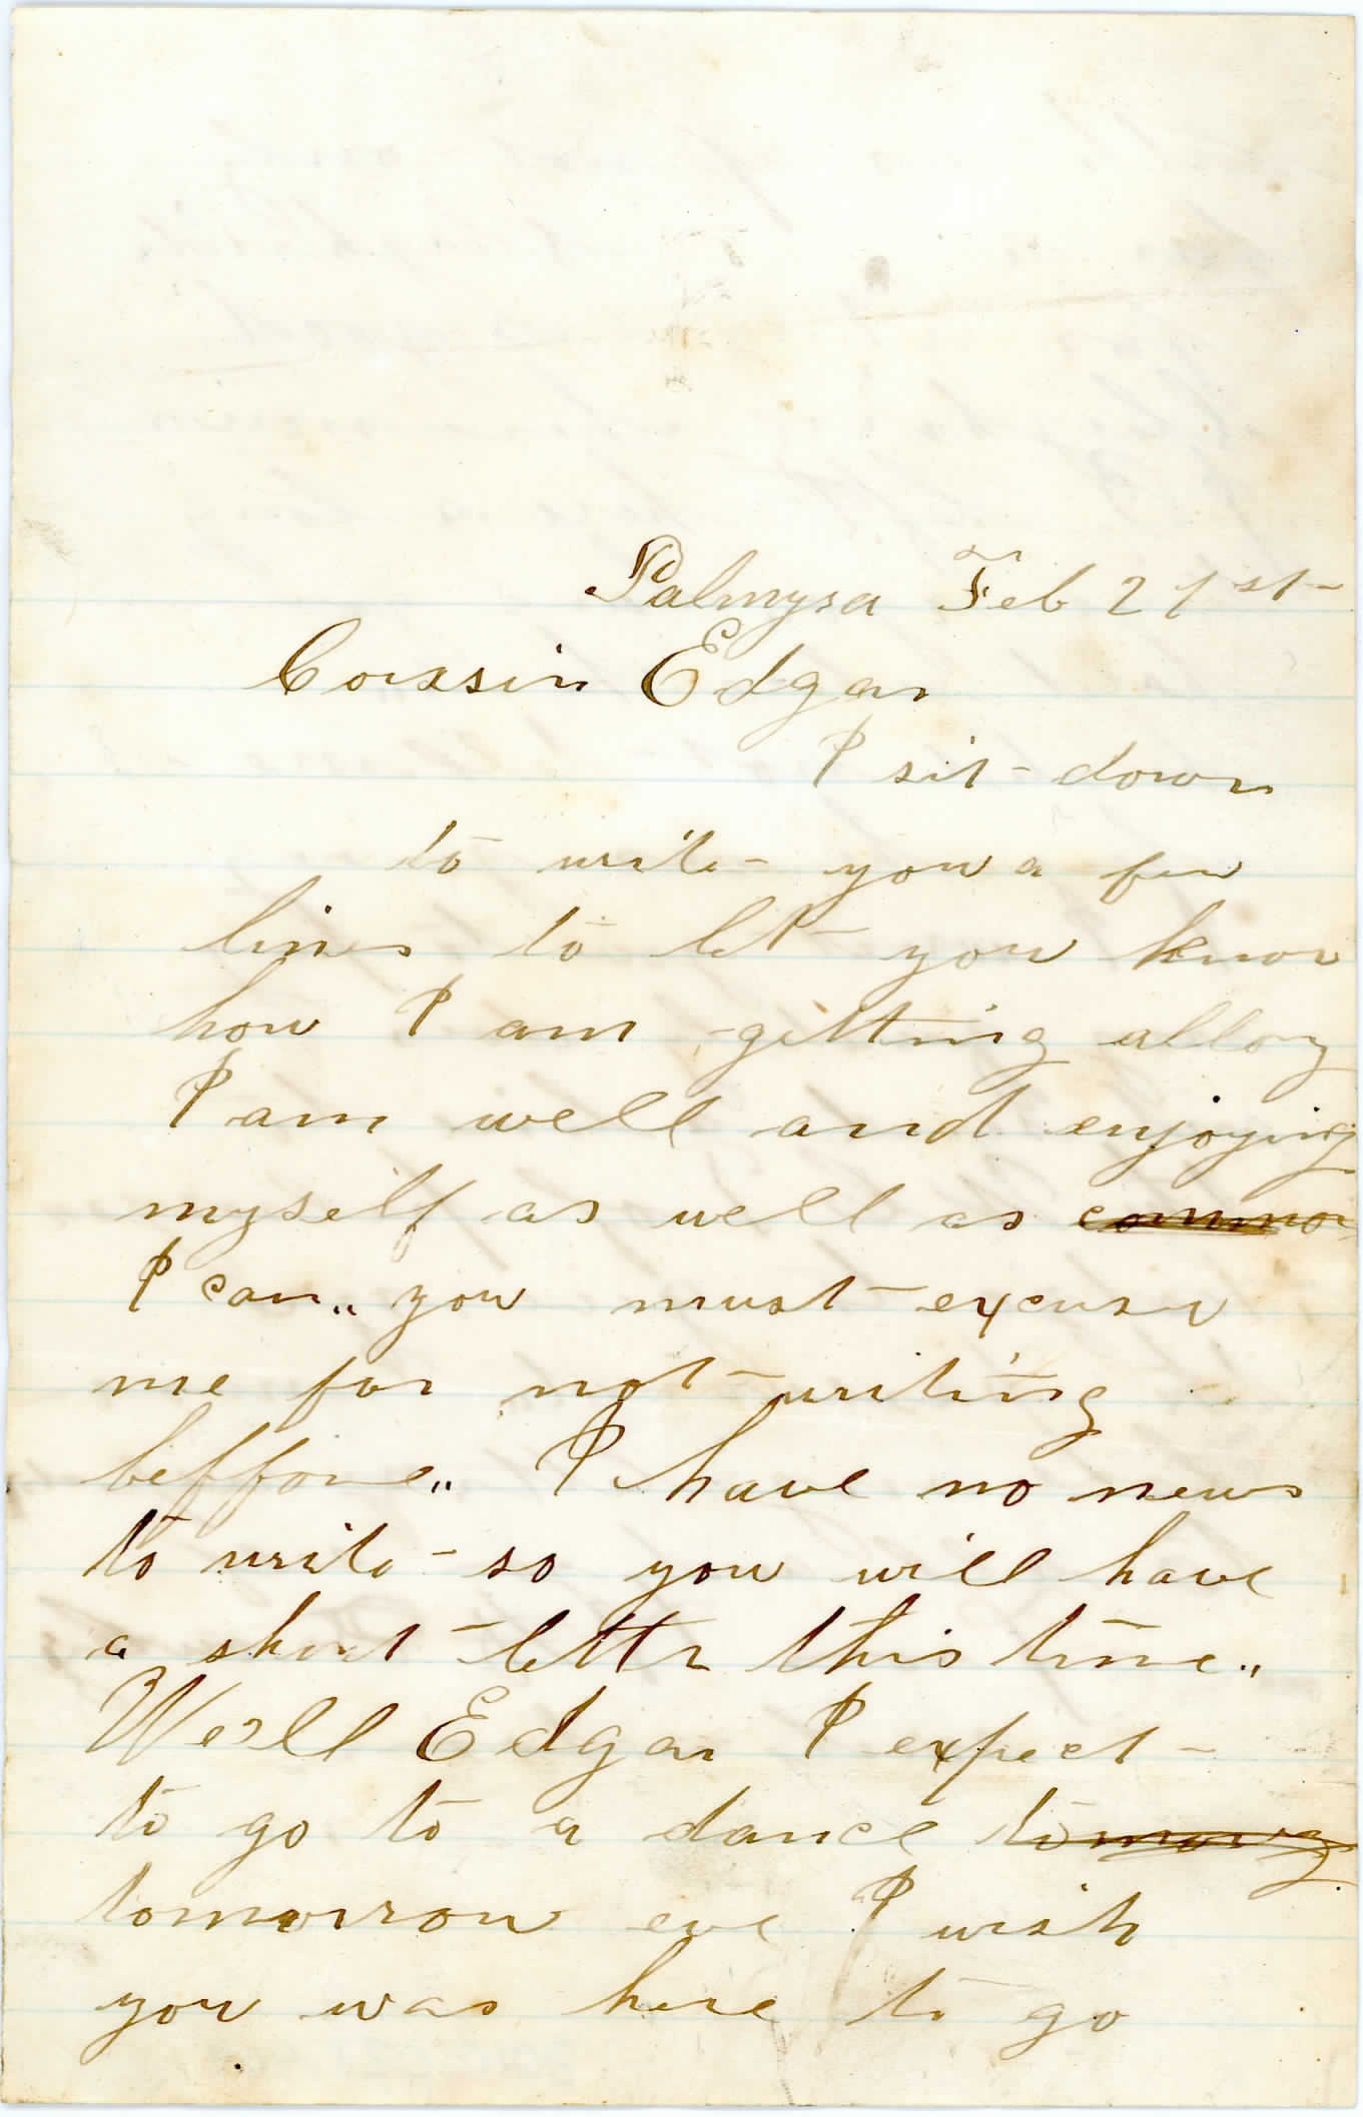 Palmyra Feb 21st
Coussin Edgar
I sit down
to write you a few
lines to let you know
how I am getting allong
I am well and enjoying
myself as well as common
I can,, you must excuse
me for not writing
beffore,, I have no news
to write so you will have
a short letter this time,,
Well Edgar I expect
to go to a dance
tomorrow eve I wish
you was here to go